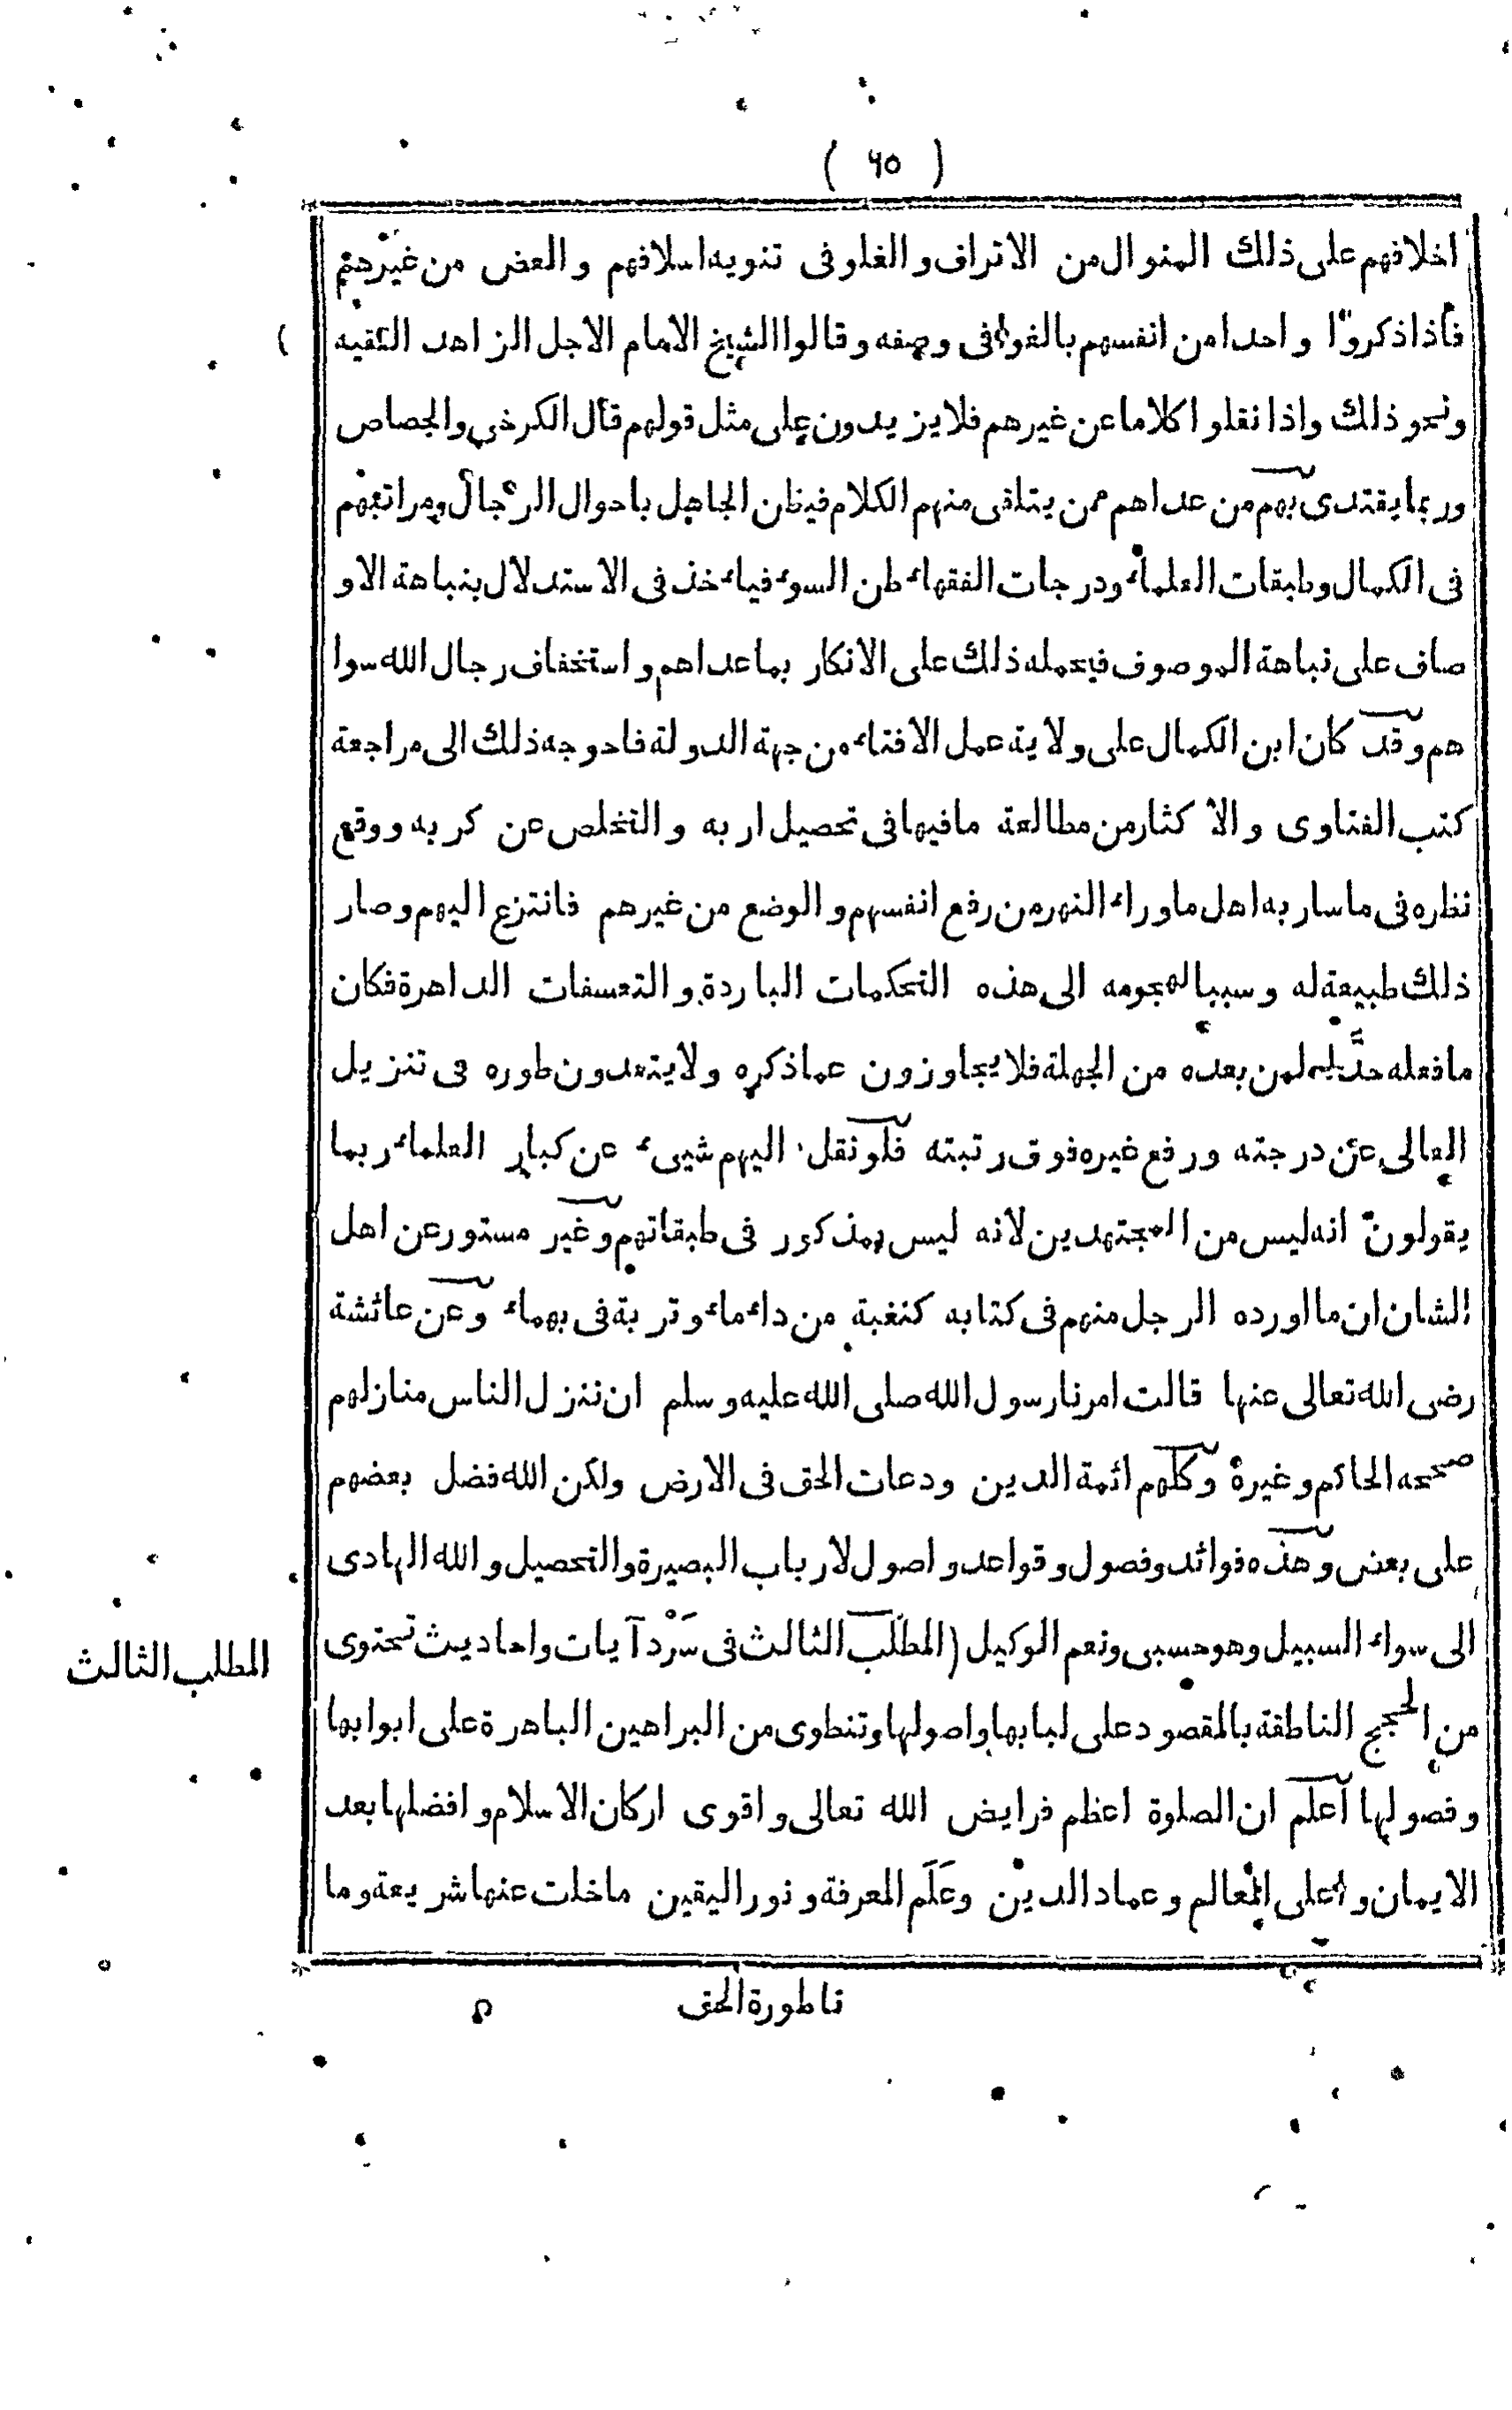 ( ٦٥ )
اخلافهم على ذلك المنوال من الاتراف والغلو فى تنويه اسلافهم والغض من غيرهم
فاذا ذكروا واحدا من انفسهم بالغوا فى وصفه وقالوا الشيخ الامام الاجل الزاهد الفقيه
ونحو ذلك واذا نقلوا كلاما عن غيرهم فلا يزيدون على مثل قولهم قال الكرخى والجصاص
وربما يقتدى بهم من عداهم ممن يتلقى منهم الكلام فيظن الجاهل باحوال الرجال ومراتبهم
فى الكمال وطبقات العلماء ودرجات الفقهاء ظن السوء فياءخذ فى الاستدلال بنباهة الاو
صاف على نباهة الموصوف فيحمله ذلك على الانكار بما عداهم واستخفاف رجال الله سوا
هم وقد كان ابن الكمال على ولاية عمل الافتاء من جهة الدولة فاحوجه ذلك الى مراجعة
كتب الفتاوى والاكثار من مطالعة ما فيها فى تحصيل اربه والتخلص عن كربه ووقع
نظره فى ما سار به اهل ما وراء النهر من رفع انفسهم والوضع من غيرهم فانتزع اليهم وصار
ذلك طبيعة له وسببا لهجومه الى هذه التحكمات الباردة والتعسفات الداهرة فكان
ما فعله حدّ لمن بعده من الجهلة فلا يجاوزون عما ذكره ولا يتعدون طوره فى تنزيل
العالى عن درجته ورفع غيره فوق رتبته فلو نقل اليهم شيىء عن كبار العلماء ربما
يقولون انه ليس من المجتهدين لانه ليس بمذكور فى طبقاتهم وغير مستور عن اهل
الشان ان ما اورده الرجل منهم فى كتابه كنغبة من داءماء وتربة فى بهماء وعن عائشة
رضى الله تعالى عنها قالت امرنا رسول الله صلى الله عليه وسلم ان ننزل الناس منازلهم
صححه الحاكم وغيره وكلهم ائمة الدين ودعات الحق فى الارض ولكن الله فضل بعضهم
على بعض وهذه فوائد وفصول وقواعد واصول لارباب البصيرة والتحصيل والله الهادى
الى سواء السبيل وهو حسبى ونعم الوكيل (المطلب الثالث فى سَرْد آيات واحاديث تحتوى
المطلب الثالث
من الحجج الناطقة بالمقصود على لبابها واصولها وتنطوى من البراهين الباهرة على ابوابها
وفصولها اعلم ان الصلوة اعظم فرايض الله تعالى واقوى اركان الاسلام وافضلها بعد
الايمان واعلى المعالم وعماد الدين وعَلَم المعرفة ونور اليقين ما خلت عنها شريعة وما
ناطورة الحق ۵